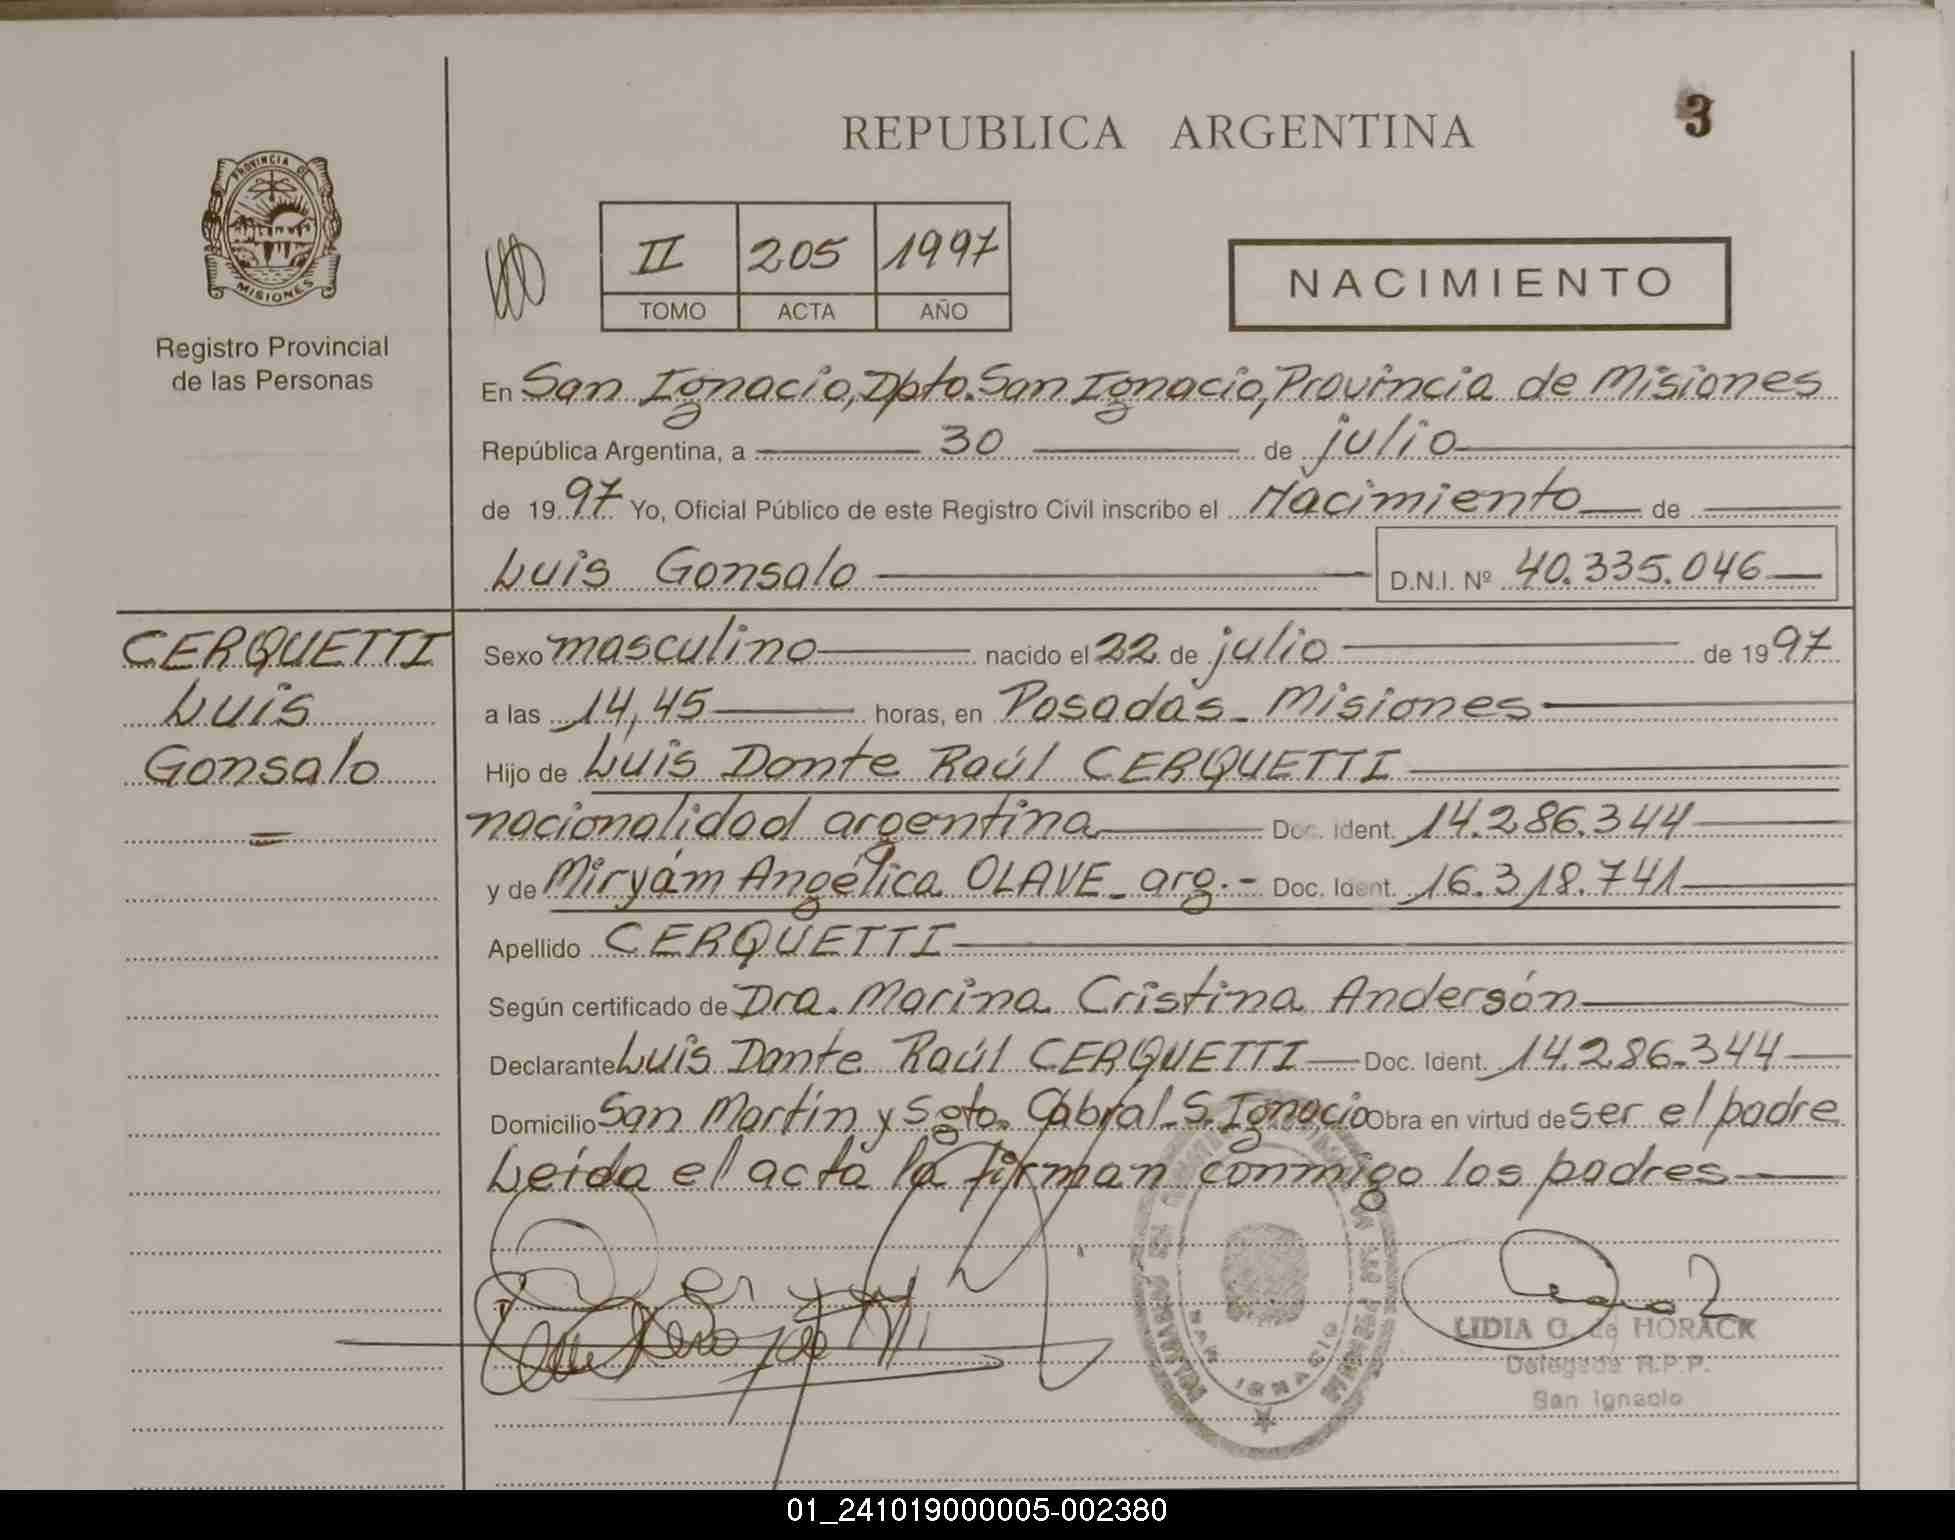 REPUBLICA ARGENTINA
3
PROVINCIA DE
MISIONES
Registro Provincial
de las Personas
II 205 1997
TOMO ACTA AÑO
NACIMIENTO
En San Ignacio, Dpto. San Ignacio, Provincia de Misiones
República Argentina, a 30 de julio
de 1997 Yo, Oficial Público de este Registro Civil inscribo el Nacimiento de
Luis Gonsalo D.N.I. Nº 40.335.046
CERQUETTI
Luis
Gonsalo
Sexo masculino nacido el 22 de julio de 1997
a las 14,45 horas, en Posadas - Misiones
Hijo de Luis Dante Raúl CERQUETTI
nacionalidad argentina Doc. Ident. 14.286.344
y de Miryám Angélica OLAVE - arg.- Doc. Ident. 16.318.741
Apellido CERQUETTI
Según certificado de Dra. Marina Cristina Andersón
Declarante Luis Dante Raúl CERQUETTI Doc. Ident. 14.286.344
Domicilio San Martín y Sgto. Cabral - S. Ignacio Obra en virtud de ser el padre
Leída el acta la firman conmigo los padres
SAN IGNACIO
LIDIA O. de HORACK
Delegada R.P.P.
San Ignacio
01_241019000005-002380